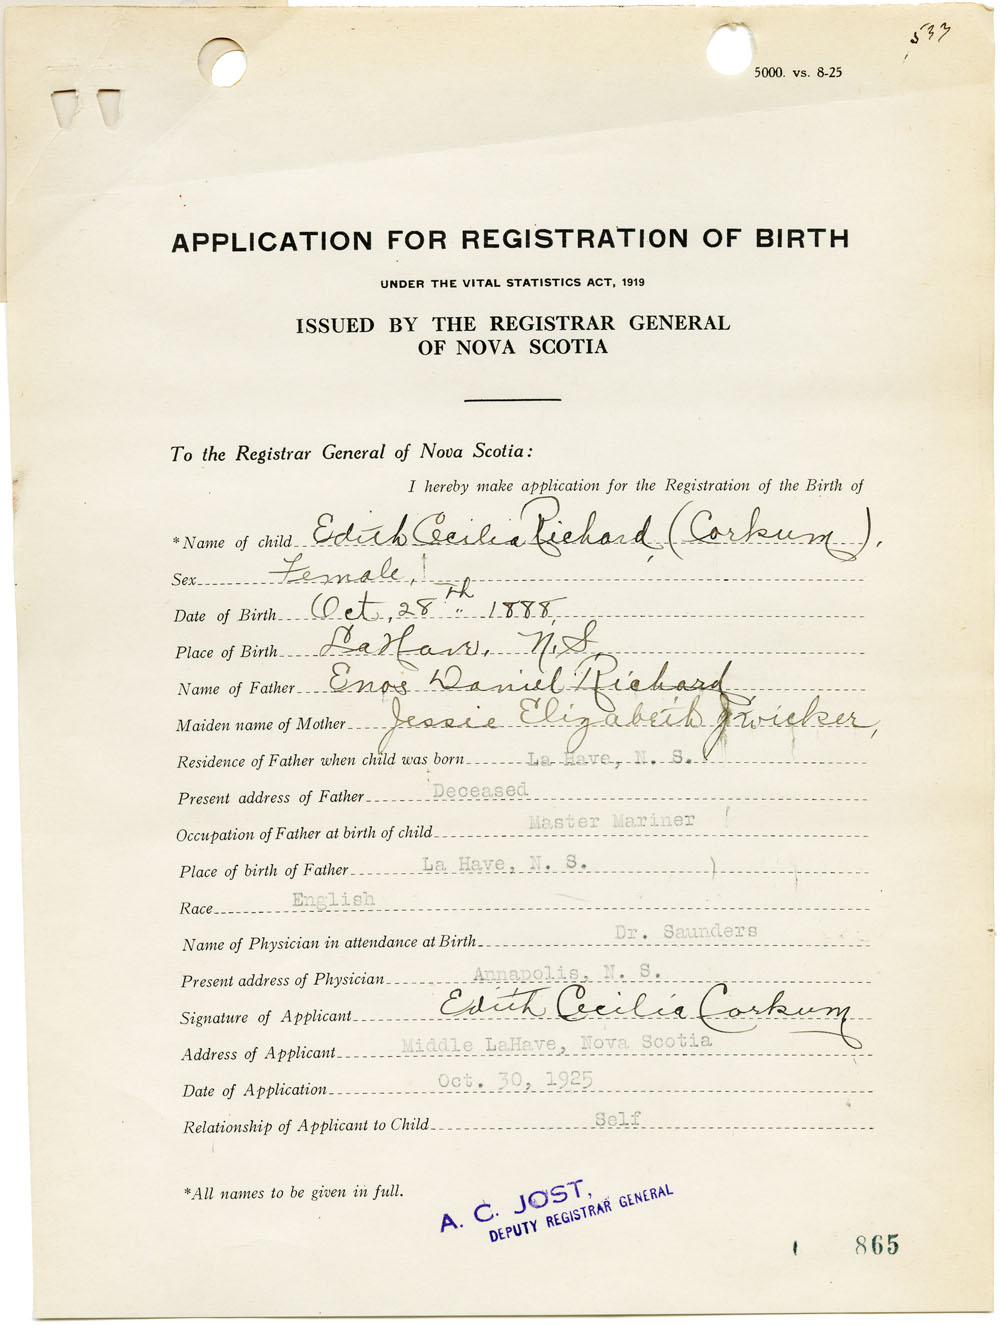 533
5000. vs. 8-25
APPLICATION FOR REGISTRATION OF BIRTH
UNDER THE VITAL STATISTICS ACT, 1919
ISSUED BY THE REGISTRAR GENERAL
OF NOVA SCOTIA
To the Registrar General of Nova Scotia:
I hereby make application for the Registration of the Birth of
*Name of child Edith Cecilia Richard, (Corkum),
Sex Female,
Date of Birth Oct, 28th 1888,
Place of Birth LaHave, N.S,
Name of Father Enos Daniel Richard,
Maiden name of Mother Jessie Elizabeth Zwicker,
Residence of Father when child was born La Have, N. S.
Present address of Father Deceased
Occupation of Father at birth of child Master Mariner
Place of birth of Father La Have, N. S.
Race English
Name of Physician in attendance at Birth Dr. Saunders
Present address of Physician Annapolis, N. S.
Signature of Applicant Edith Cecilia Corkum
Address of Applicant Middle LaHave, Nova Scotia
Date of Application Oct. 30, 1925
Relationship of Applicant to Child Self
*All names to be given in full.
A. C. JOST,
DEPUTY REGISTRAR GENERAL
865